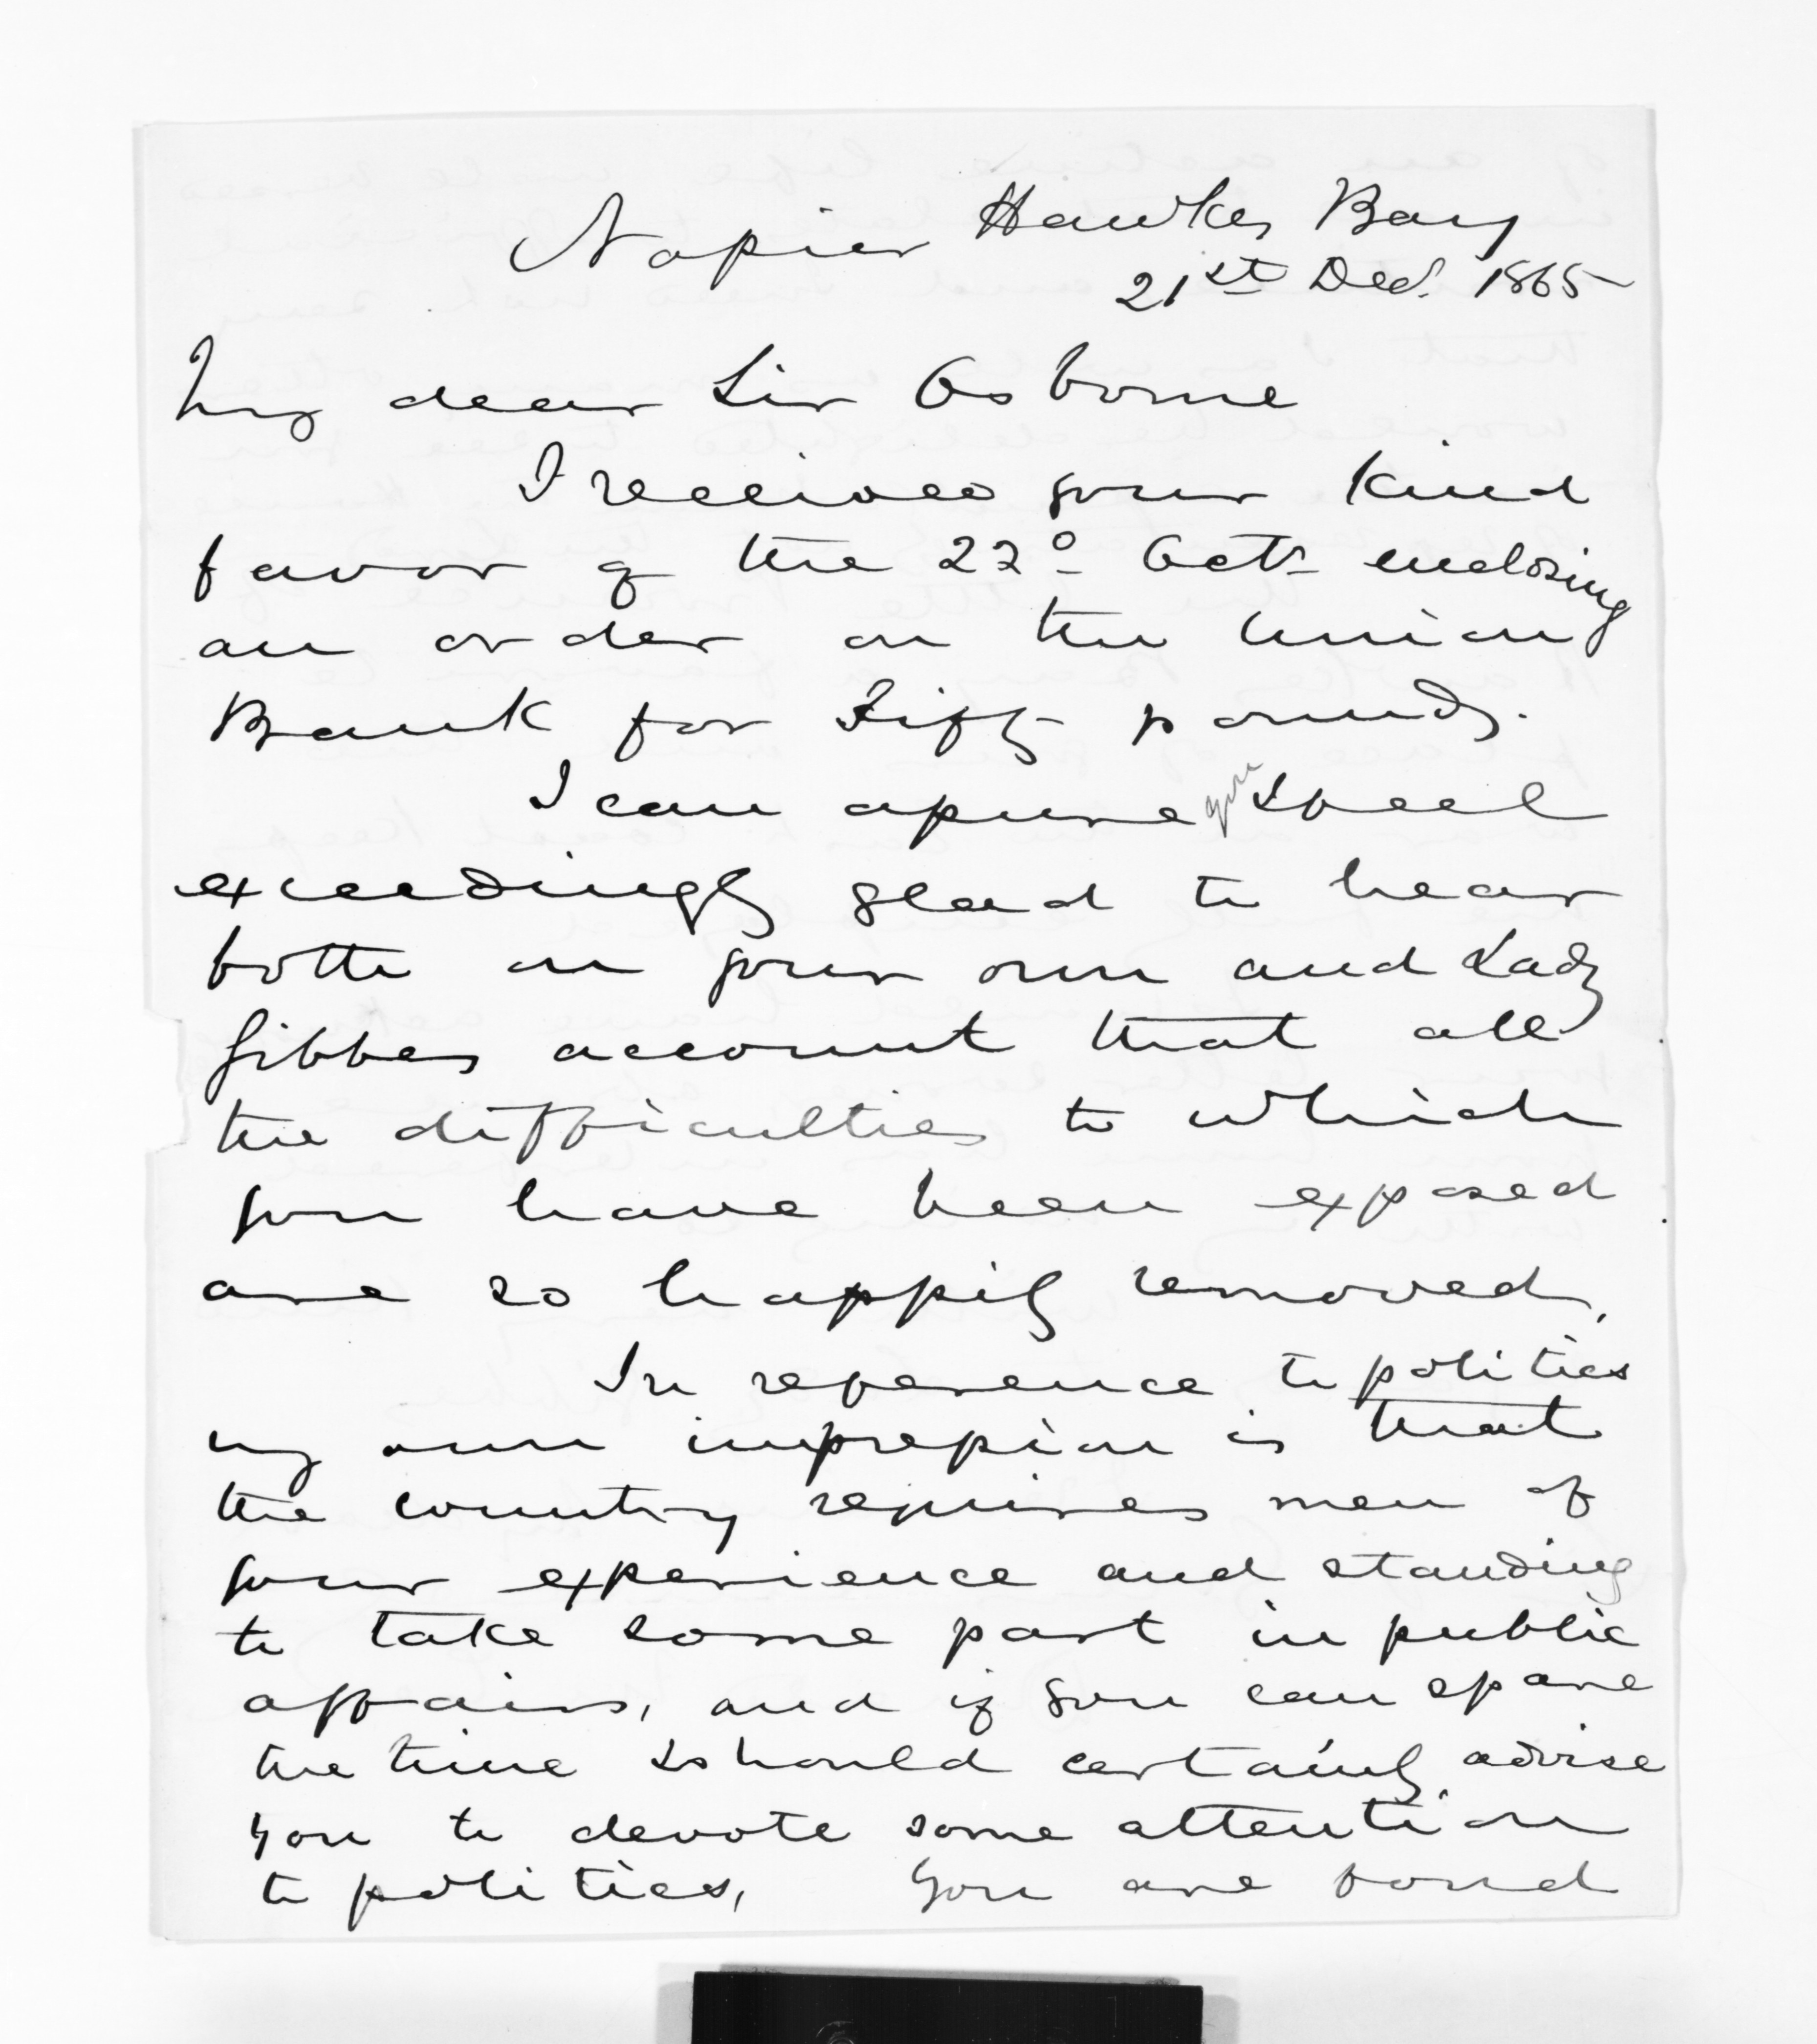 Napier Hawkes Bay
21st Decr. 1865
My dear Sir Osborne
I received your kind
favor of the 22o Octr enclosing
an order on the Union
Bank for Fifty pounds.
I can assure you I feel
exceedingly glad to hear
both on your own and Lady
Gibbes account that all
the difficulties to which
you have been exposed
are so happily removed,
In reference to politics
my own impression is that
the country requires men of
your experience and standing
to take some part in public
affairs, and if you can spare
the time I should certainly advise
you to devote some attention
to politics, You are fond